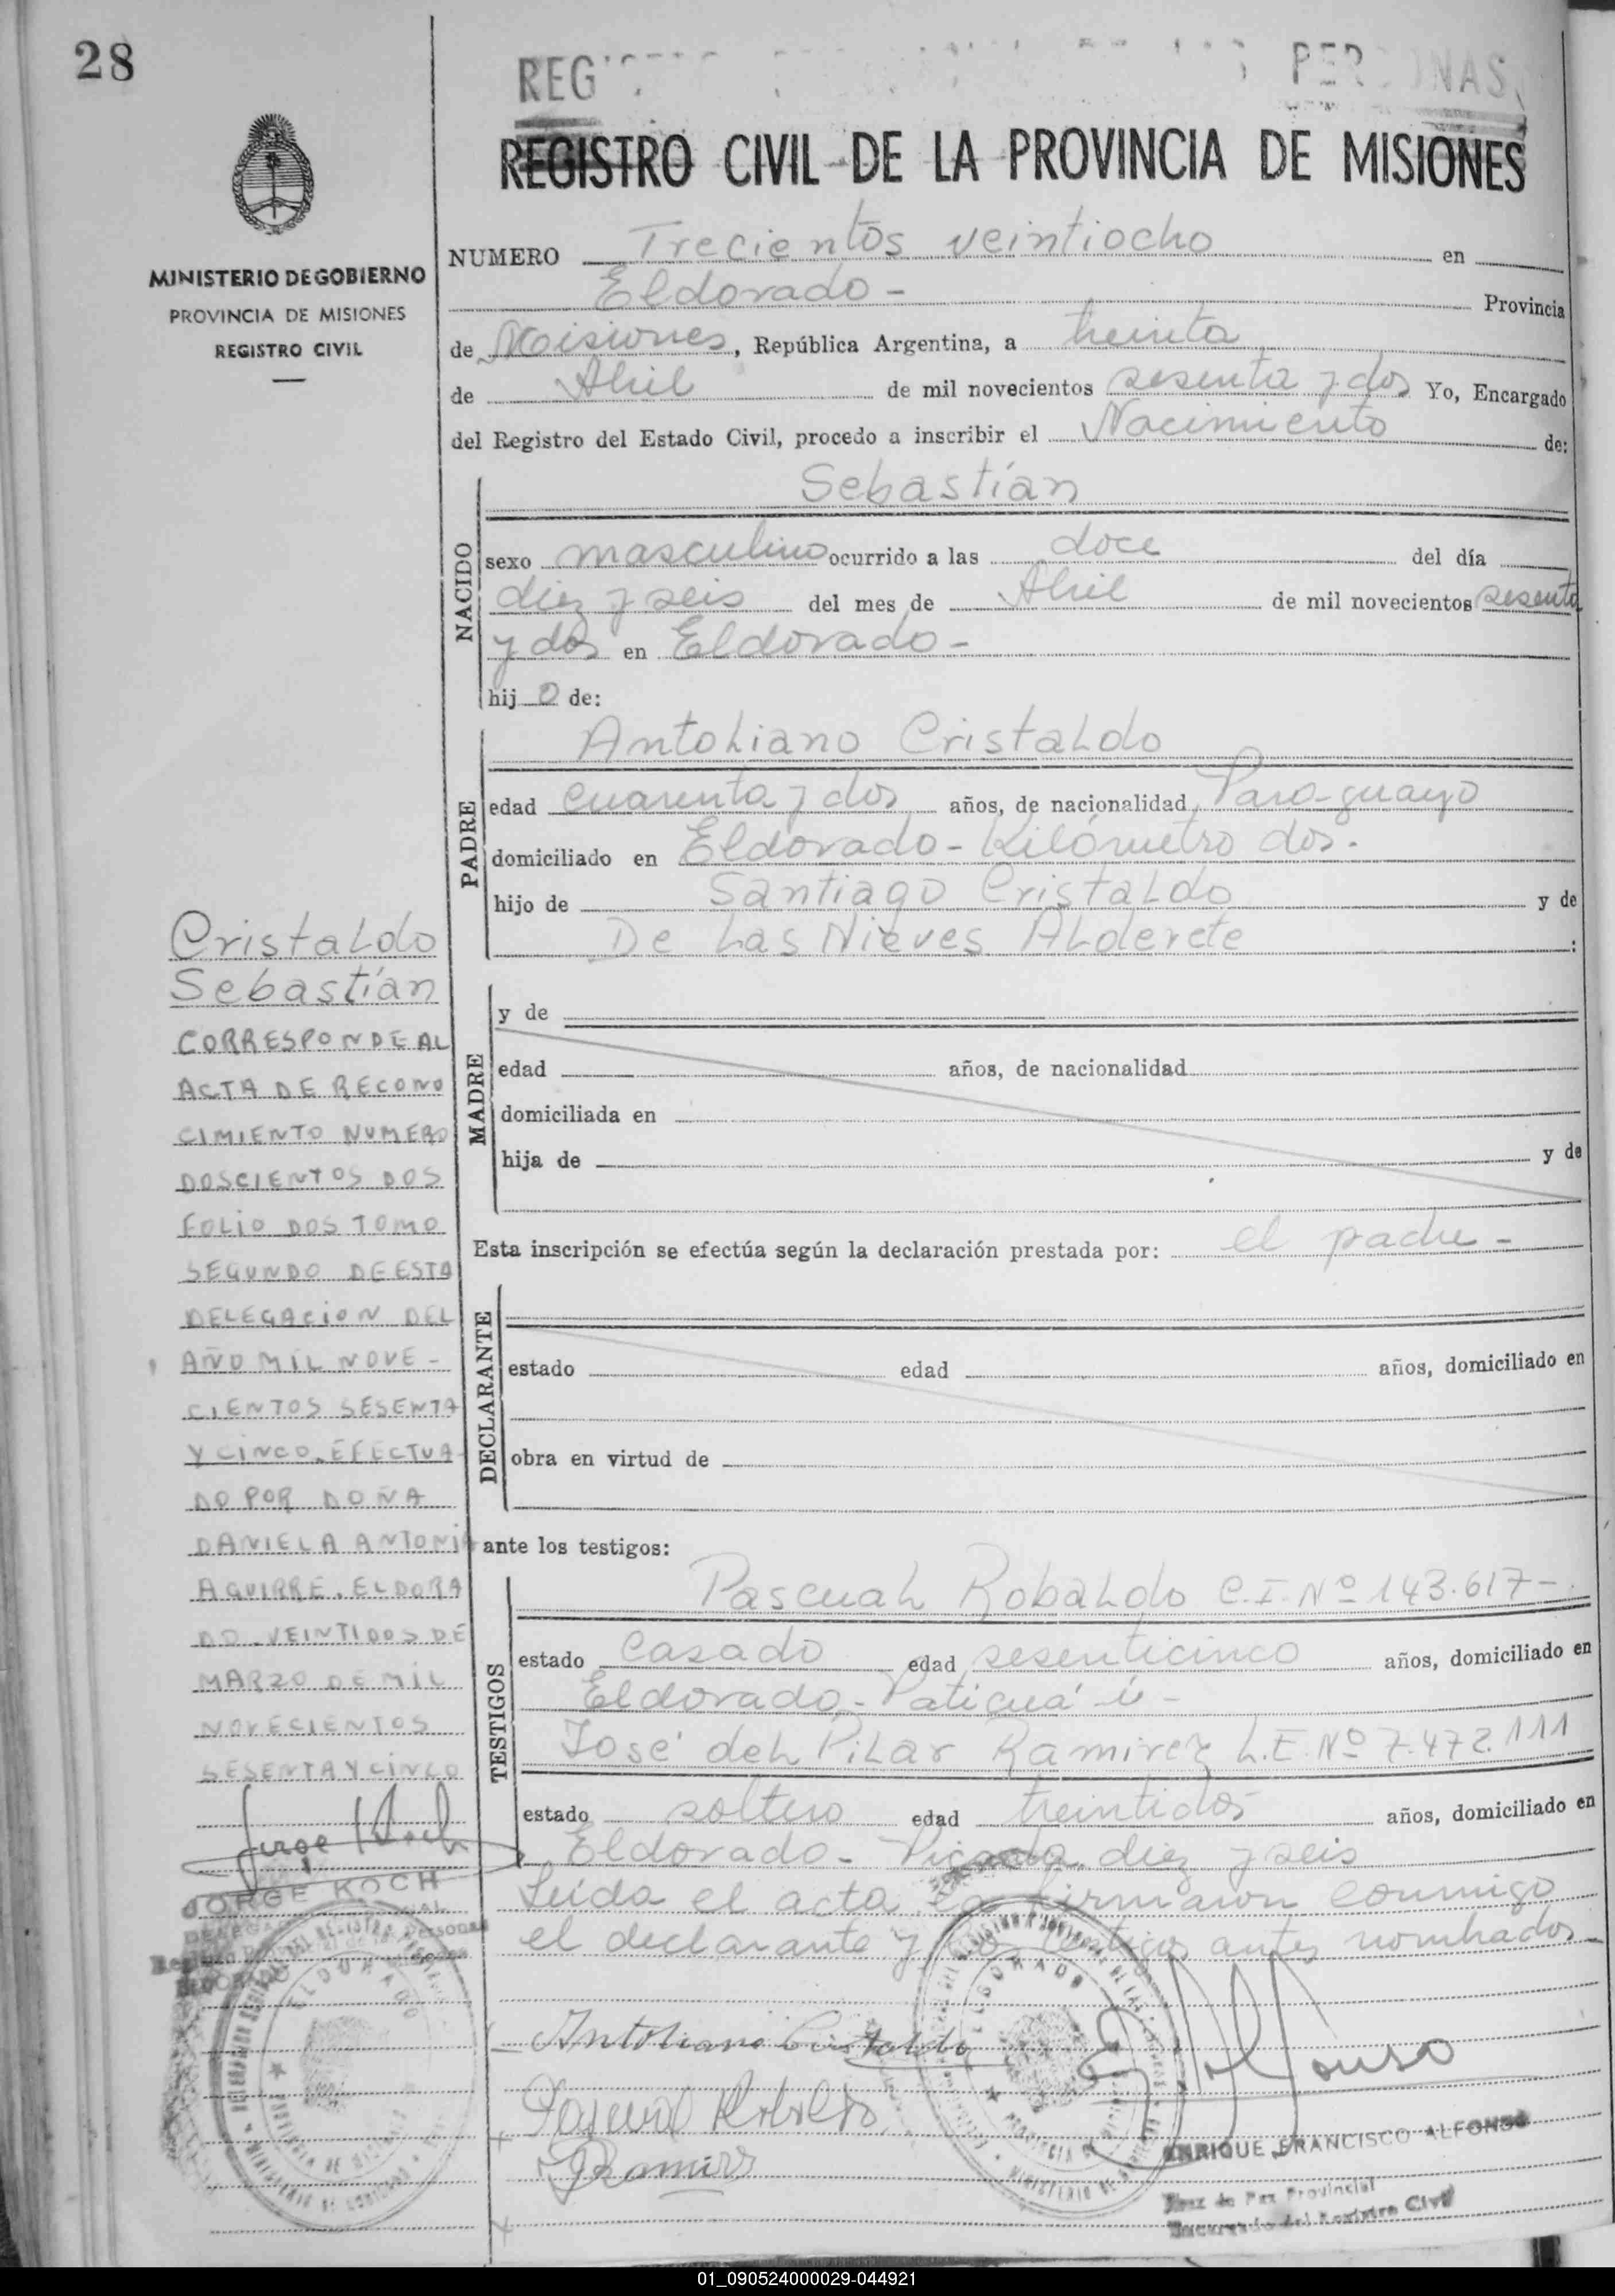 28
REGISTRO CIVIL DE LA PROVINCIA DE MISIONES
MINISTERIO DE GOBIERNO
PROVINCIA DE MISIONES
REGISTRO CIVIL
NUMERO Trecientos veintiocho en
Eldorado - Provincia
de Misiones, República Argentina, a treinta
de Abril de mil novecientos sesenta y dos Yo, Encargado
del Registro del Estado Civil, procedo a inscribir el Nacimiento de:
NACIDO
Sebastián
sexo masculino ocurrido a las doce del día
diez y seis del mes de Abril de mil novecientos sesenta
y dos en Eldorado -
hijo de:
PADRE
Antoliano Cristaldo
edad cuarenta y dos años, de nacionalidad Paraguayo
domiciliado en Eldorado - Kilómetro dos.
hijo de Santiago Cristaldo y de
De Las Nieves Alderete :
MADRE
y de
edad años, de nacionalidad
domiciliada en
hija de y de
Esta inscripción se efectúa según la declaración prestada por: el padre -
DECLARANTE
estado edad años, domiciliado en
obra en virtud de
ante los testigos:
TESTIGOS
Pascual Robaldo C.I. Nº 143.617 -
estado casado edad sesenticinco años, domiciliado en
Eldorado -
José del Pilar Ramirez L.E. Nº 7.472.111
estado soltero edad treintidos años, domiciliado en
Eldorado - Picada diez y seis
Leida el acta la firmaron conmigo
el declarante y los testigos antes nombrados -
Antoliano Cristaldo
ENRIQUE FRANCISCO ALFONSO
Juez de Paz Provincial
Encargado del Registro Civil
Cristaldo
Sebastián
CORRESPONDE AL
ACTA DE RECONO
CIMIENTO NUMERO
DOSCIENTOS DOS
FOLIO DOS TOMO
SEGUNDO DE ESTA
DELEGACION DEL
AÑO MIL NOVE -
CIENTOS SESENTA
Y CINCO. EFECTUA
DO POR DOÑA
DANIELA ANTONIA
AGUIRRE. ELDORA
DO. VEINTIDOS DE
MARZO DE MIL
NOVECIENTOS
SESENTA Y CINCO
Jorge Koch
JORGE KOCH
ELDORADO
01_090524000029-044921